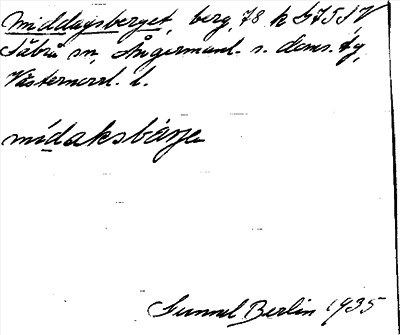 Middagsberget, berg, 78 k G 75 I V
Säbrå sn, Ångermanl. s. doms. tg,
Västernorrl. l.
mídaksbärje
Gunnel Berlin 1935